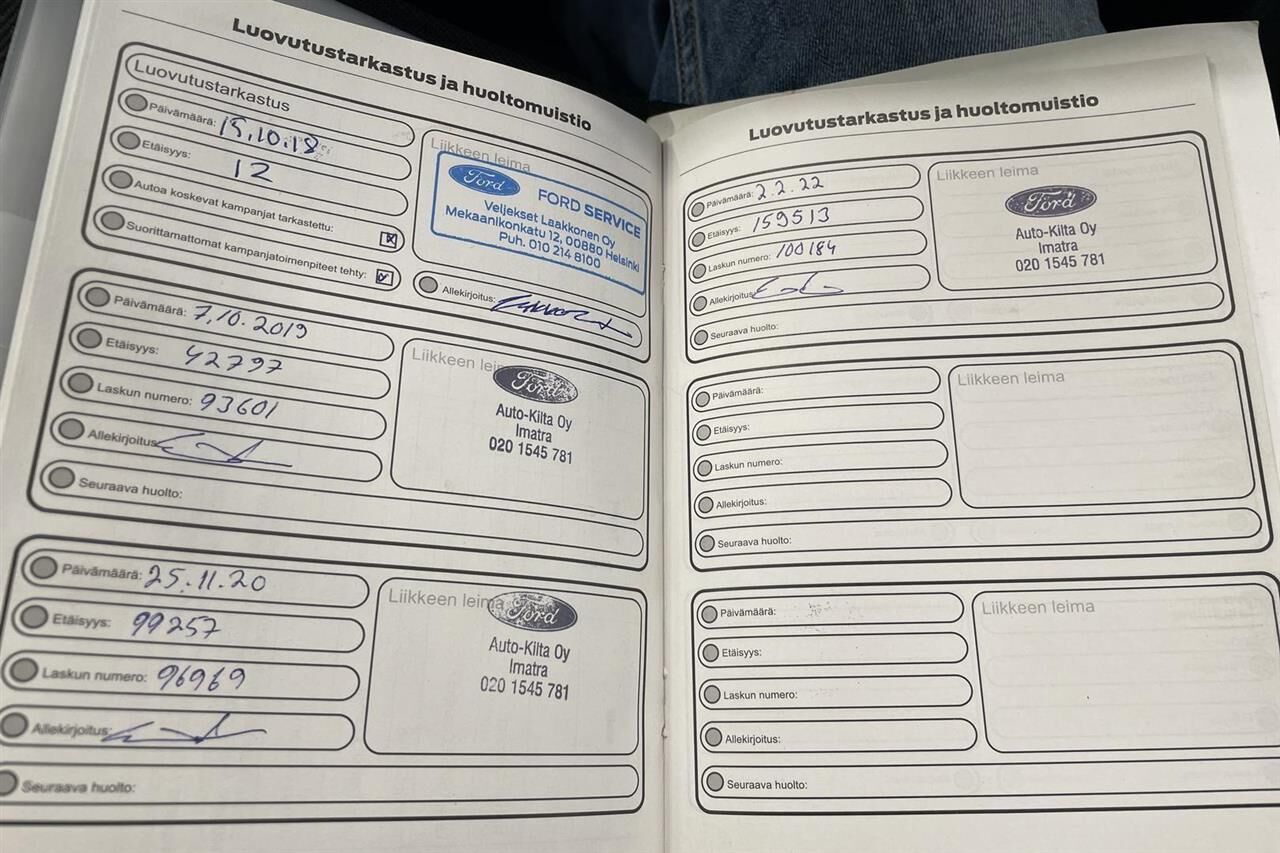 Luovutustarkastus ja huoltomuistio
Luovutustarkastus
Päivämäärä: 15.10.18
Etäisyys: 12
Autoa koskevat kampanjat tarkastettu:
Suorittamattomat kampanjatoimenpiteet tehty:
Liikkeen leima
Ford FORD SERVICE
Veljekset Laakkonen Oy
Mekaanikonkatu 12, 00880 Helsinki
Puh. 010 214 8100
Allekirjoitus:
Päivämäärä: 7.10.2019
Etäisyys: 42797
Laskun numero: 93601
Allekirjoitus:
Seuraava huolto:
Liikkeen leima
Ford
Auto-Kilta Oy
Imatra
020 1545 781
Päivämäärä: 25.11.20
Etäisyys: 99257
Laskun numero: 96969
Allekirjoitus:
Seuraava huolto:
Liikkeen leima
Ford
Auto-Kilta Oy
Imatra
020 1545 781
Luovutustarkastus ja huoltomuistio
Päivämäärä: 2.2.22
Etäisyys: 159513
Laskun numero: 100184
Allekirjoitus:
Seuraava huolto:
Liikkeen leima
Ford
Auto-Kilta Oy
Imatra
020 1545 781
Päivämäärä:
Etäisyys:
Laskun numero:
Allekirjoitus:
Seuraava huolto:
Liikkeen leima
Päivämäärä:
Etäisyys:
Laskun numero:
Allekirjoitus:
Seuraava huolto:
Liikkeen leima